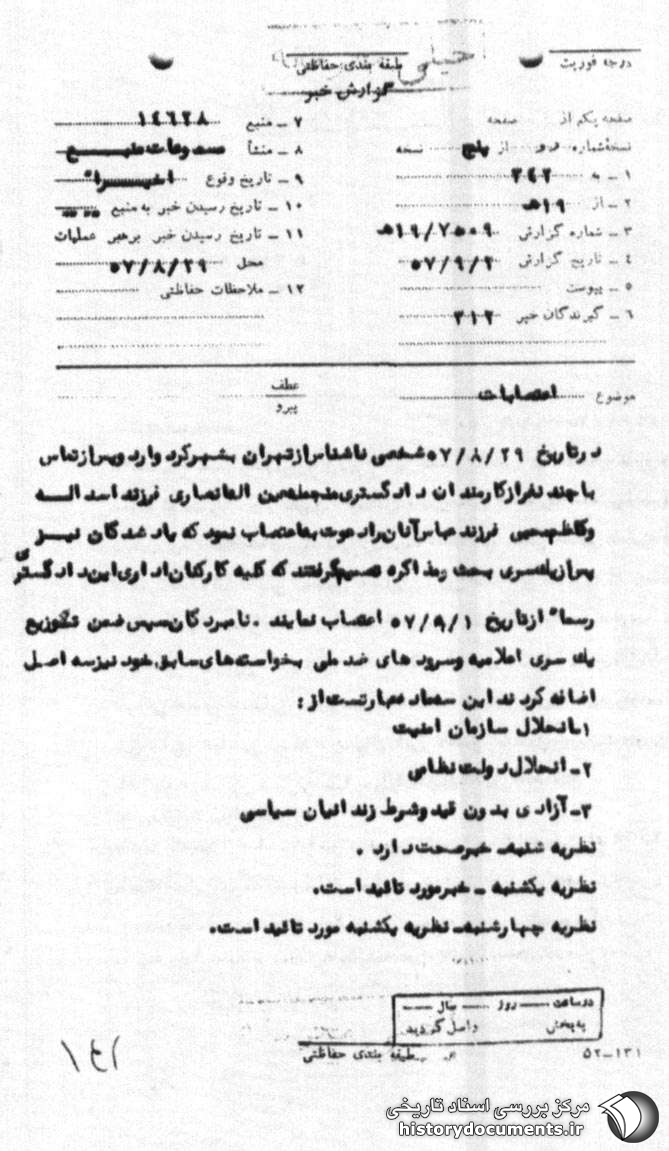 درجه فوریت
طبقه بندی حفاظتی
خیلی محرمانه
گزارش خبر
صفحه یکم از صفحه
نسخهٔ شماره دو از پنج نسخه
۱ ـ به ۳۴۲
۲ ـ از ۱۹ه‍
۳ ـ شماره گزارش ۷۵۰۹/۱۹ه‍
۴ ـ تاریخ گزارش ۵۷/۹/۲
۵ ـ پیوست
۶ ـ گیرندگان خبر ۳۱۲
۷ ـ منبع ۱۴۶۲۸
۸ ـ منشأ مسموعات منبع
۹ ـ تاریخ وقوع اخیراً
۱۰ ـ تاریخ رسیدن خبر به منبع
۱۱ ـ تاریخ رسیدن خبر برهبر عملیات
محل ۵۷/۸/۲۹
۱۲ ـ ملاحظات حفاظتی
موضوع اعتصابات
عطف
پیرو
در تاریخ ۵۷/۸/۲۹ شخصی ناشناس از تهران بشهرکرد وارد و پس از تماس
با چند نفر از کارمندان دادگستری منجمله انصاری فرزند اسداله
وکاظم محبی فرزند عباس آنان را دعوت به اعتصاب نمود که یاد شدگان نیز
پس از یک سری بحث و مذاکره تصمیم گرفتند که کلیه کارکنان اداری این دادگستری
رسماً از تاریخ ۵۷/۹/۱ اعتصاب نمایند . نامبردگان سپس ضمن توزیع
یک سری اعلامیه و سرود های ضد ملی بخواسته های سابق خود نیز سه اصل
اضافه کردند این سه عبارتست از :
۱ـ انحلال سازمان امنیت
۲ـ انحلال دولت نظامی
۳ـ آزادی بدون قید و شرط زندانیان سیاسی
نظریه شنبه ـ خبر صحت دارد .
نظریه یکشنبه ـ خبر مورد تائید است.
نظریه چهارشنبه ـ نظریه یکشنبه مورد تائید است.
در ساعت روز سال
به بخش واصل گردید
طبقه بندی حفاظتی
۵۲ـ۱۳۱
مرکز بررسی اسناد تاریخی
historydocuments.ir